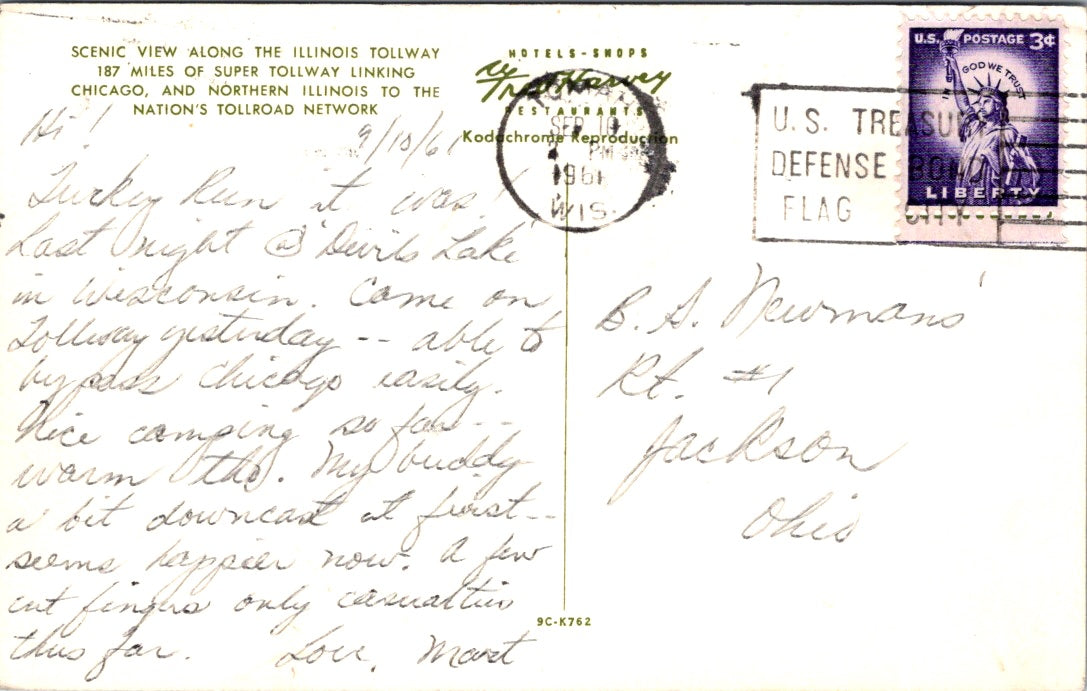 SCENIC VIEW ALONG THE ILLINOIS TOLLWAY
187 MILES OF SUPER TOLLWAY LINKING
CHICAGO, AND NORTHERN ILLINOIS TO THE
NATION'S TOLLROAD NETWORK
HOTELS - SHOPS
Fred Harvey
RESTAURANTS
Kodachrome Reproduction
SEP 10
PM
1961
WIS.
U.S. TREASURY
DEFENSE BOND
FLAG CITY
U.S. POSTAGE 3¢
IN GOD WE TRUST
LIBERTY
Hi!
9/10/61
Turkey Run it was!
Last night @ "Devils Lake"
in Wisconsin. Came on
Tollway yesterday -- able to
bypass Chicago easily.
Nice camping so far --
warm tho. My buddy
a bit downcast at first --
seems happier now. A few
cut fingers only casualties
thus far. Love, Mart
B. S. Newmans'
Rt. #1
Jackson
Ohio
9C-K762